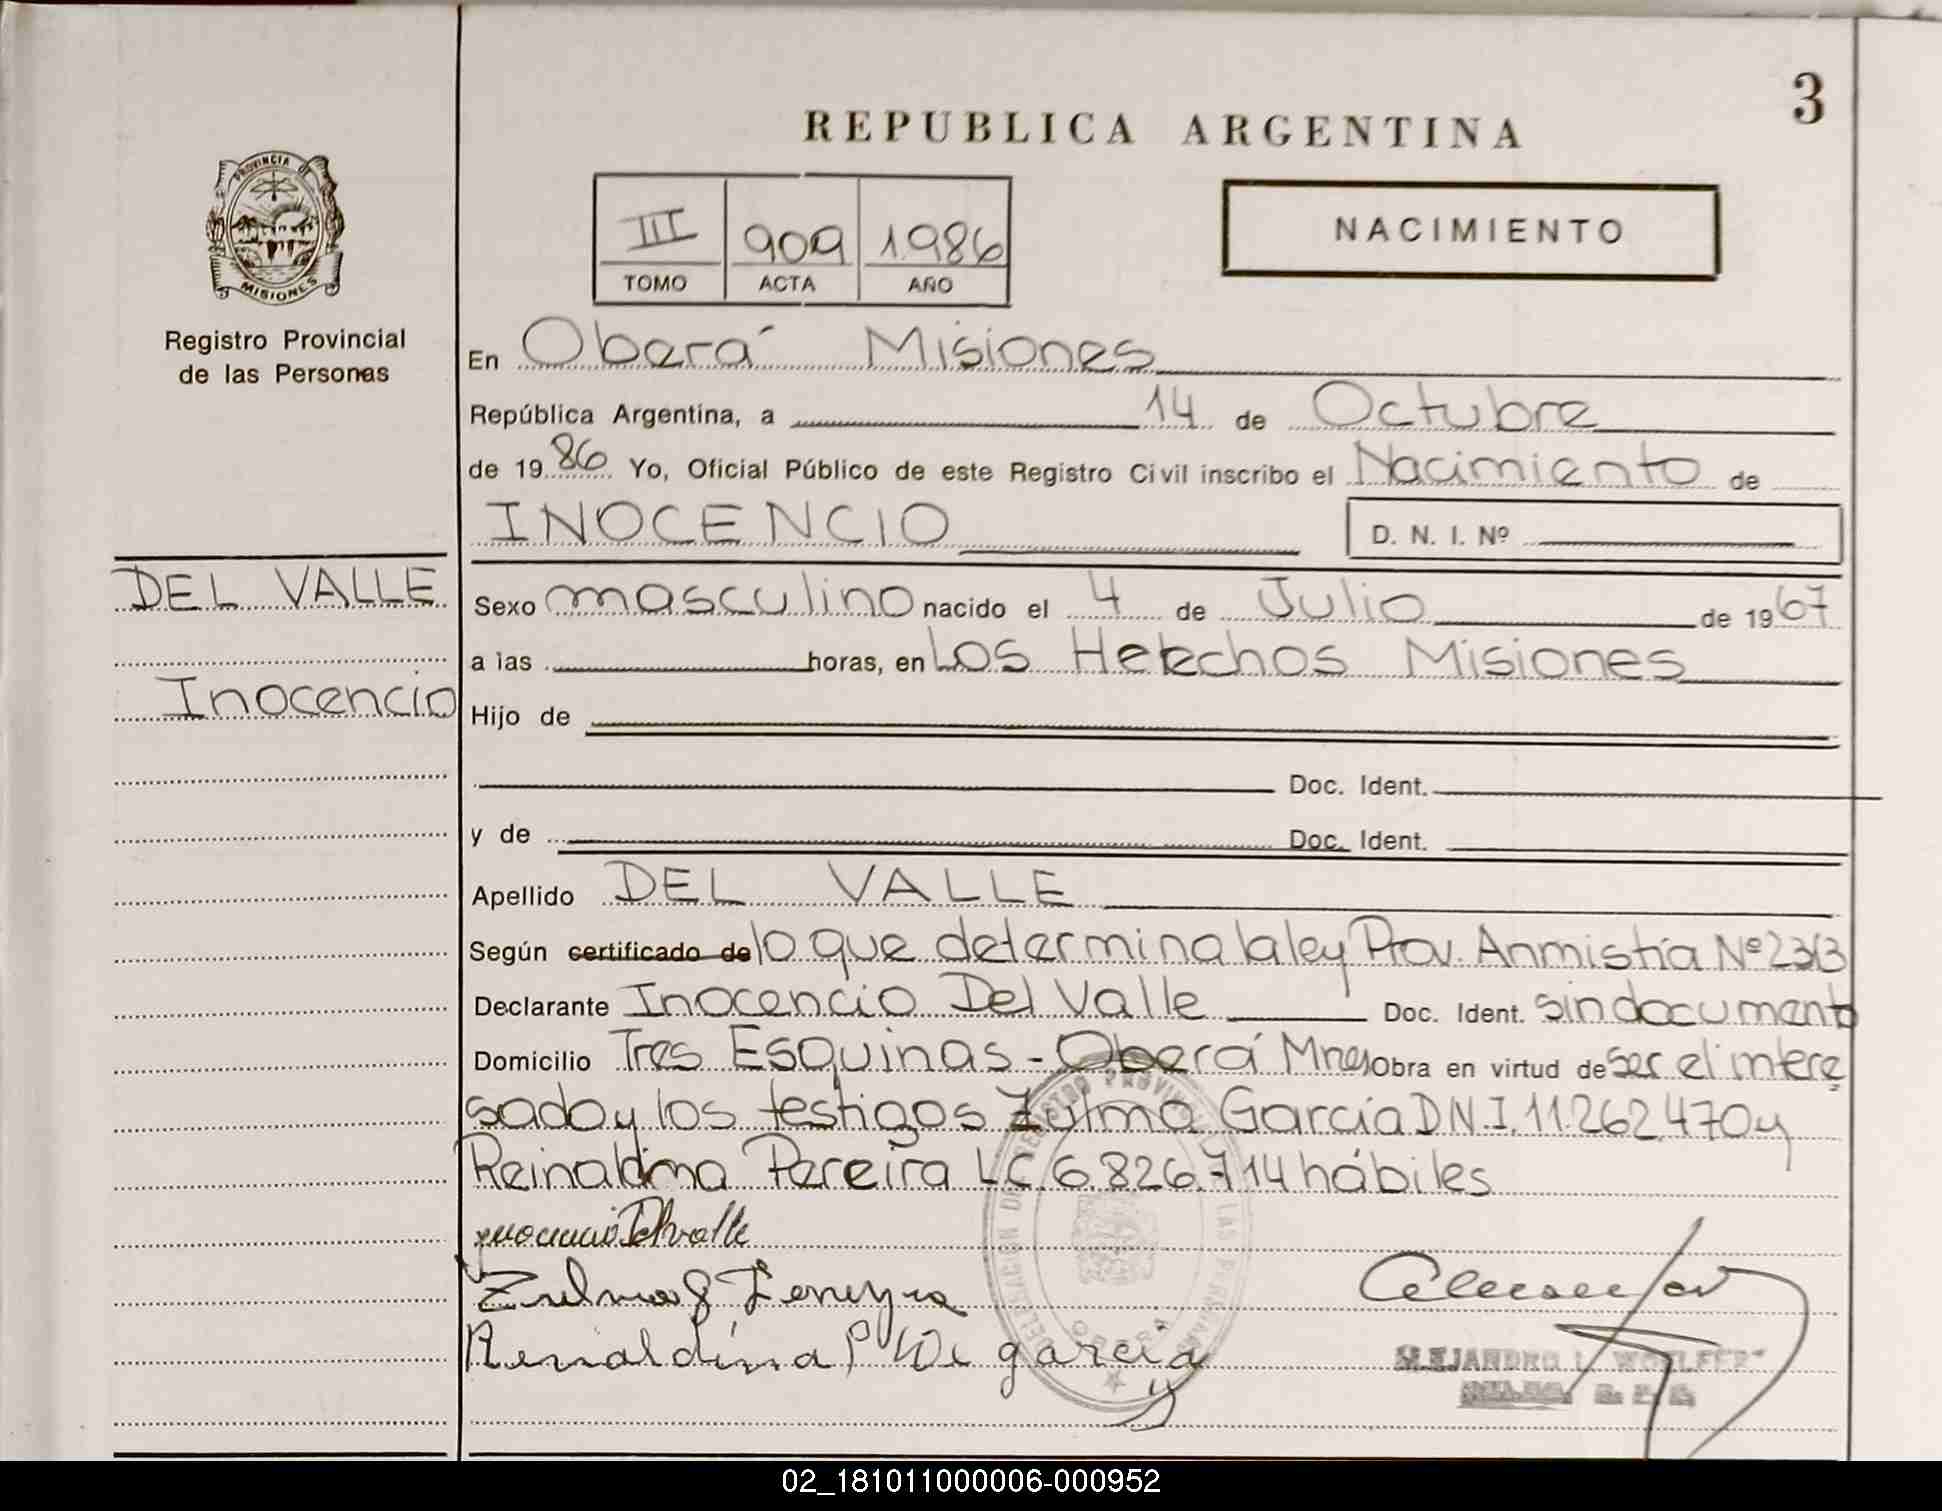 3
REPUBLICA ARGENTINA
PROVINCIA DE
MISIONES
III 909 1986
TOMO ACTA AÑO
NACIMIENTO
Registro Provincial
de las Personas
En Oberá Misiones
República Argentina, a 14 de Octubre
de 1986 Yo, Oficial Público de este Registro Civil inscribo el Nacimiento de
INOCENCIO D. N. I. Nº
DEL VALLE
Inocencio
Sexo masculino nacido el 4 de Julio de 1967
a las horas, en Los Helechos Misiones
Hijo de
Doc. Ident.
y de Doc. Ident.
Apellido DEL VALLE
Según certificado de lo que determina la ley Prov. Anmistía Nº 2313
Declarante Inocencio Del Valle Doc. Ident. sin documento
Domicilio Tres Esquinas - Oberá Mnes Obra en virtud de ser el intere
sado y los testigos Zulma García D.N.I. 11.262.470 y
Reinaldina Pereira L.C. 6.826.714 hábiles
Inocencio Del valle
Zulma
Reinaldina P de garcia
DELEGACION DE REGISTRO PROVINCIAL DE LAS PERSONAS
OBERA
ALEJANDRO L.
02_181011000006-000952